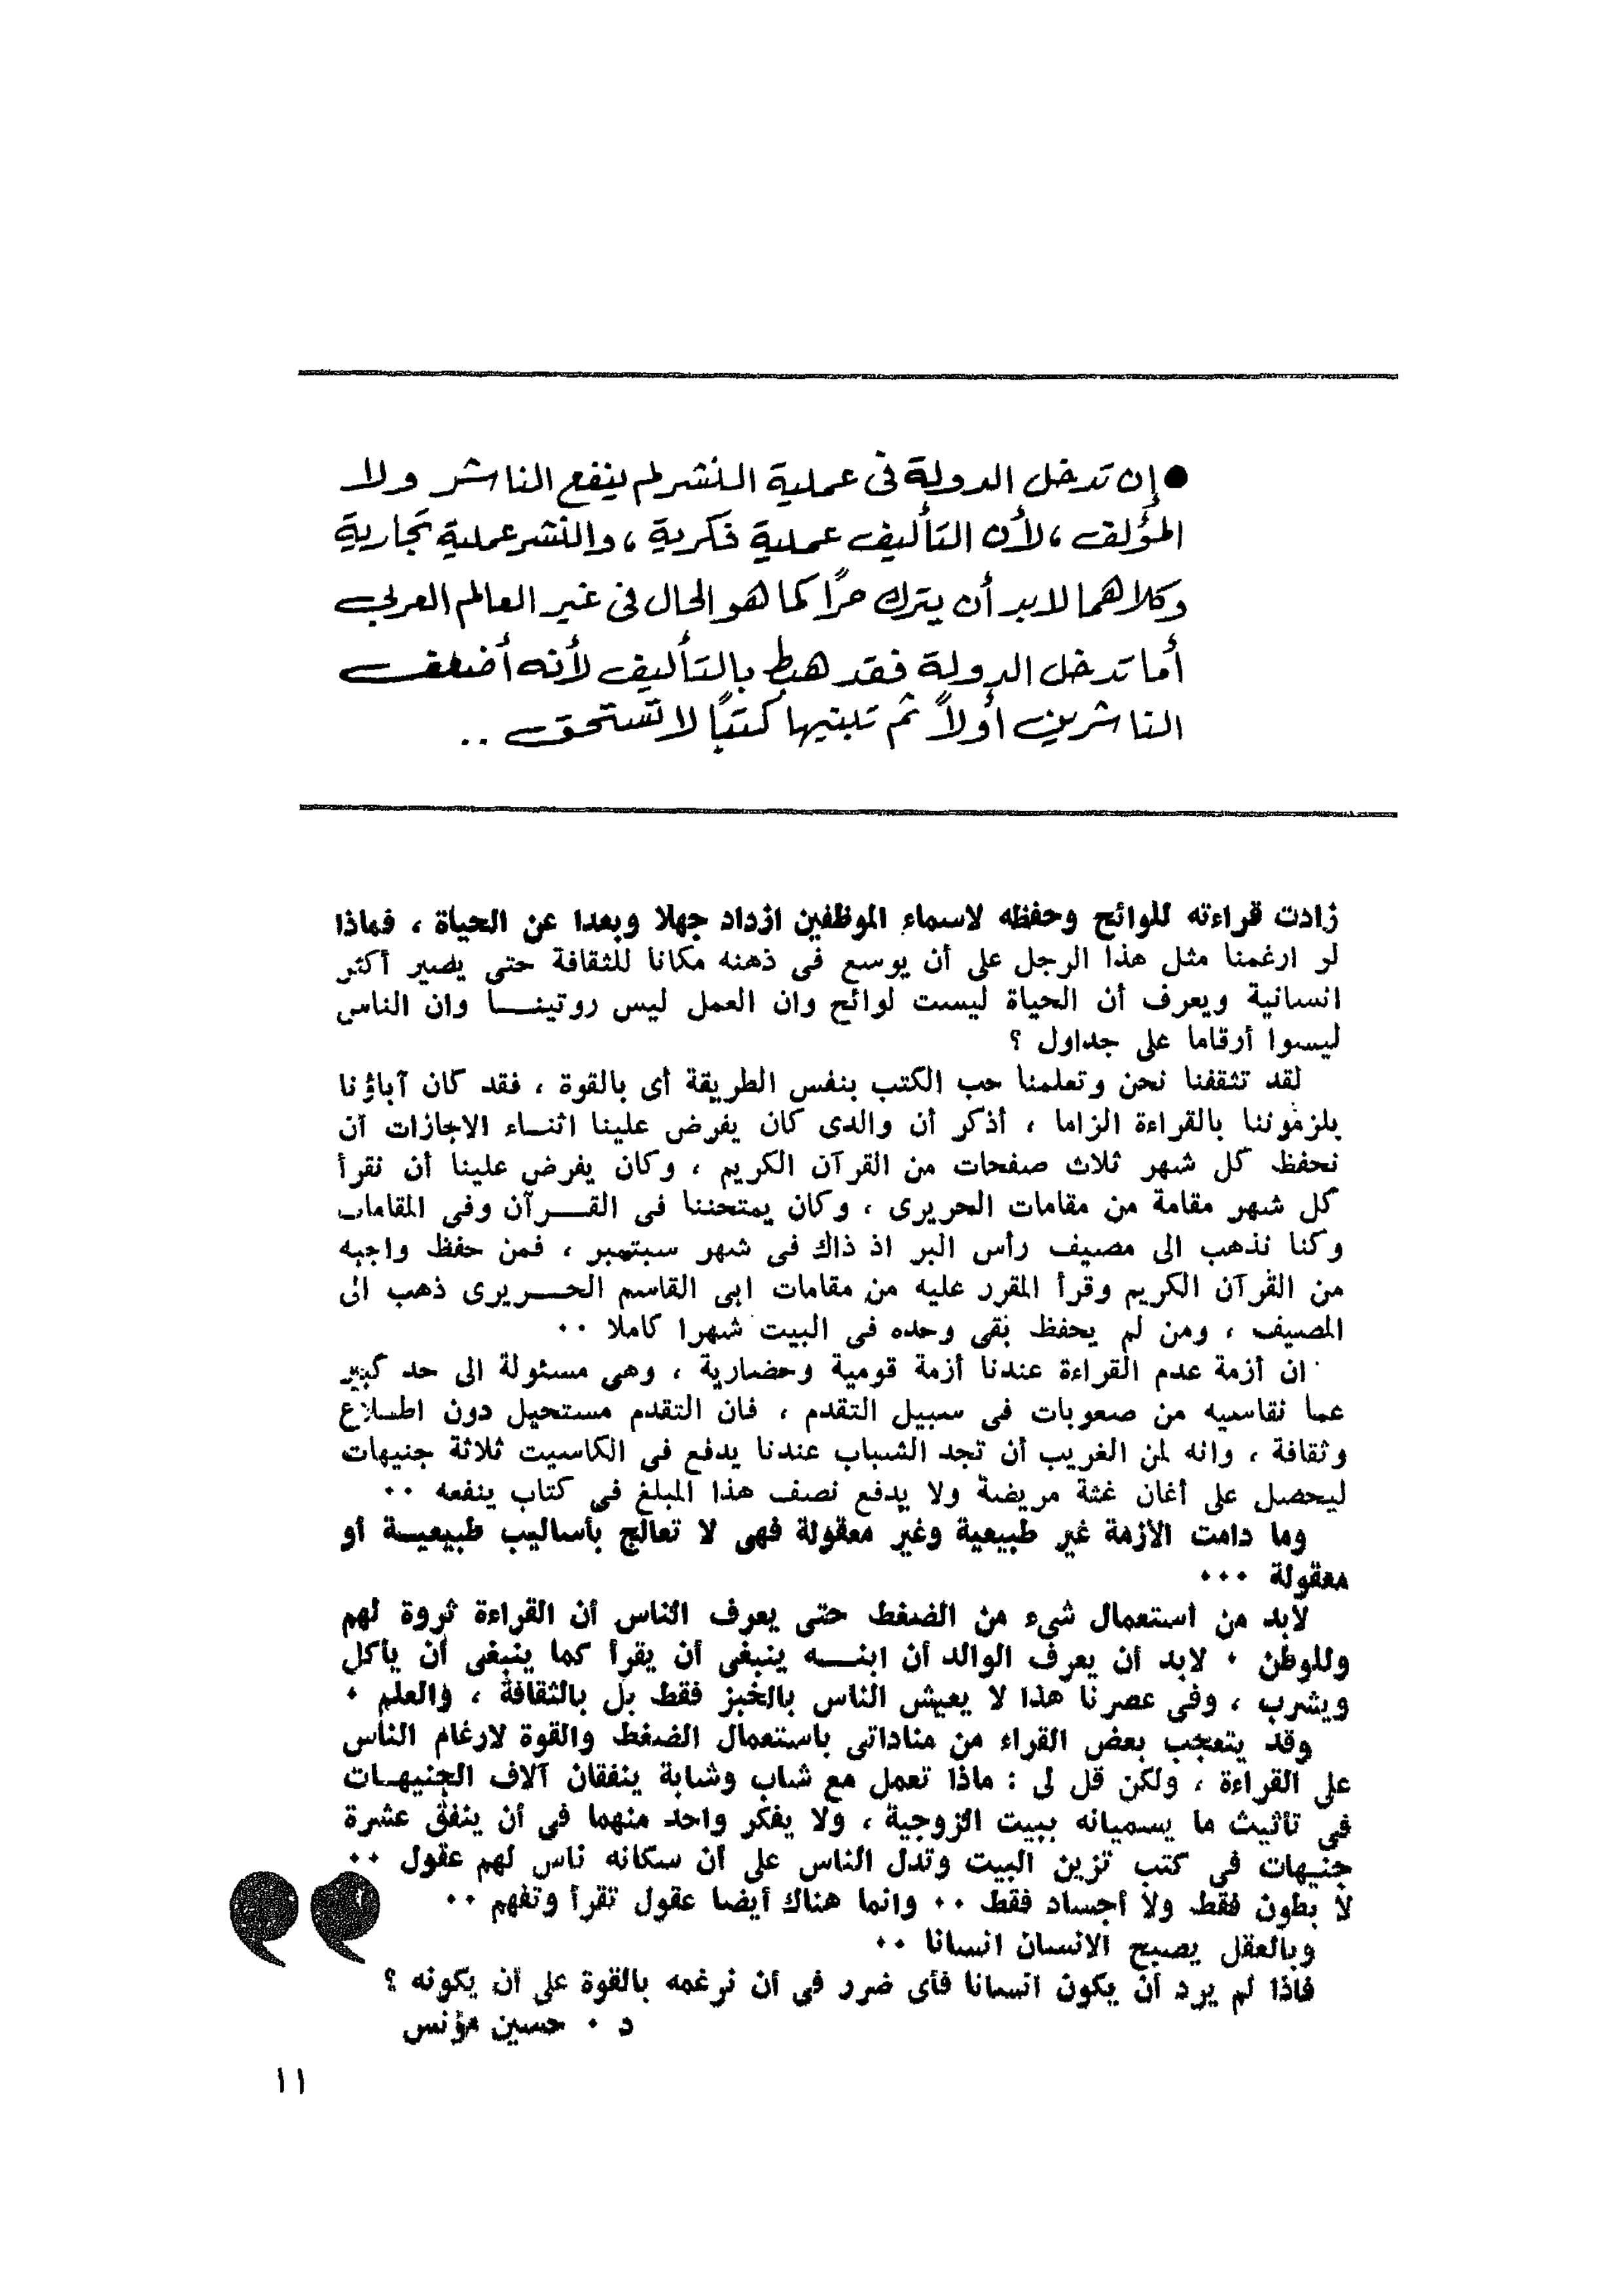 ● إن تدخل الدولة فى عملية النشر لم ينفع الناشر ولا
المؤلف ، لأن التأليف عملية فكرية ، والنشر عملية تجارية
وكلاهما لابد أن يترك حرًا كما هو الحال فى غير العالم العربى
أما تدخل الدولة فقد هبط بالتأليف لأنه أضعف
الناشرين أولاً ثم تبنيها كتبًا لا تستحق ..
زادت قراءته للوائح وحفظه لاسماء الموظفين ازداد جهلا وبعدا عن الحياة ، فماذا
لو ارغمنا مثل هذا الرجل على أن يوسع فى ذهنه مكانا للثقافة حتى يصير أكثر
انسانية ويعرف أن الحياة ليست لوائح وان العمل ليس روتينــا وان الناس
ليسوا أرقاما على جداول ؟
لقد تثقفنا نحن وتعلمنا حب الكتب بنفس الطريقة أى بالقوة ، فقد كان آباؤنا
يلزموننا بالقراءة الزاما ، أذكر أن والدى كان يفرض علينا اثنـاء الاجازات أن
نحفظ كل شهر ثلاث صفحات من القرآن الكريم ، وكان يفرض علينا أن نقرأ
كل شهر مقامة من مقامات الحريرى ، وكان يمتحننا فى القــرآن وفى المقامات
وكنا نذهب الى مصيف رأس البر اذ ذاك فى شهر سبتمبر ، فمن حفظ واجبه
من القرآن الكريم وقرأ المقرر عليه من مقامات ابى القاسم الحــريرى ذهب الى
المصيف ، ومن لم يحفظ بقى وحده فى البيت شهرا كاملا ٠٠
ان أزمة عدم القراءة عندنا أزمة قومية وحضارية ، وهى مسئولة الى حد كبير
عما نقاسيه من صعوبات فى سبيل التقدم ، فان التقدم مستحيل دون اطـلاع
وثقافة ، وانه لمن الغريب أن تجد الشباب عندنا يدفع فى الكاسيت ثلاثة جنيهات
ليحصل على أغان غثة مريضة ولا يدفع نصف هذا المبلغ فى كتاب ينفعه ٠٠
وما دامت الأزمة غير طبيعية وغير معقولة فهى لا تعالج بأساليب طبيعيـة أو
معقولة ٠٠٠
لابد من استعمال شىء من الضغط حتى يعرف الناس أن القراءة ثروة لهم
وللوطن ٠ لابد أن يعرف الوالد أن ابنــه ينبغى أن يقرأ كما ينبغى أن يأكل
ويشرب ، وفى عصرنا هذا لا يعيش الناس بالخبز فقط بل بالثقافة ، والعلم ٠
وقد يتعجب بعض القراء من مناداتى باستعمال الضغط والقوة لارغام الناس
على القراءة ، ولكن قل لى : ماذا تعمل مع شاب وشابة ينفقان آلاف الجنيهـات
فى تأثيث ما يسميانه ببيت الزوجية ، ولا يفكر واحد منهما فى أن ينفق عشرة
جنيهات فى كتب تزين البيت وتدل الناس على أن سكانه ناس لهم عقول ٠٠
لا بطون فقط ولا أجساد فقط ٠٠ وانما هناك أيضا عقول تقرأ وتفهم ٠٠
وبالعقل يصبح الانسان انسانا ٠٠
فاذا لم يرد أن يكون انسانا فأى ضرر فى أن نرغمه بالقوة على أن يكونه ؟
د ٠ حسين مؤنس
١١